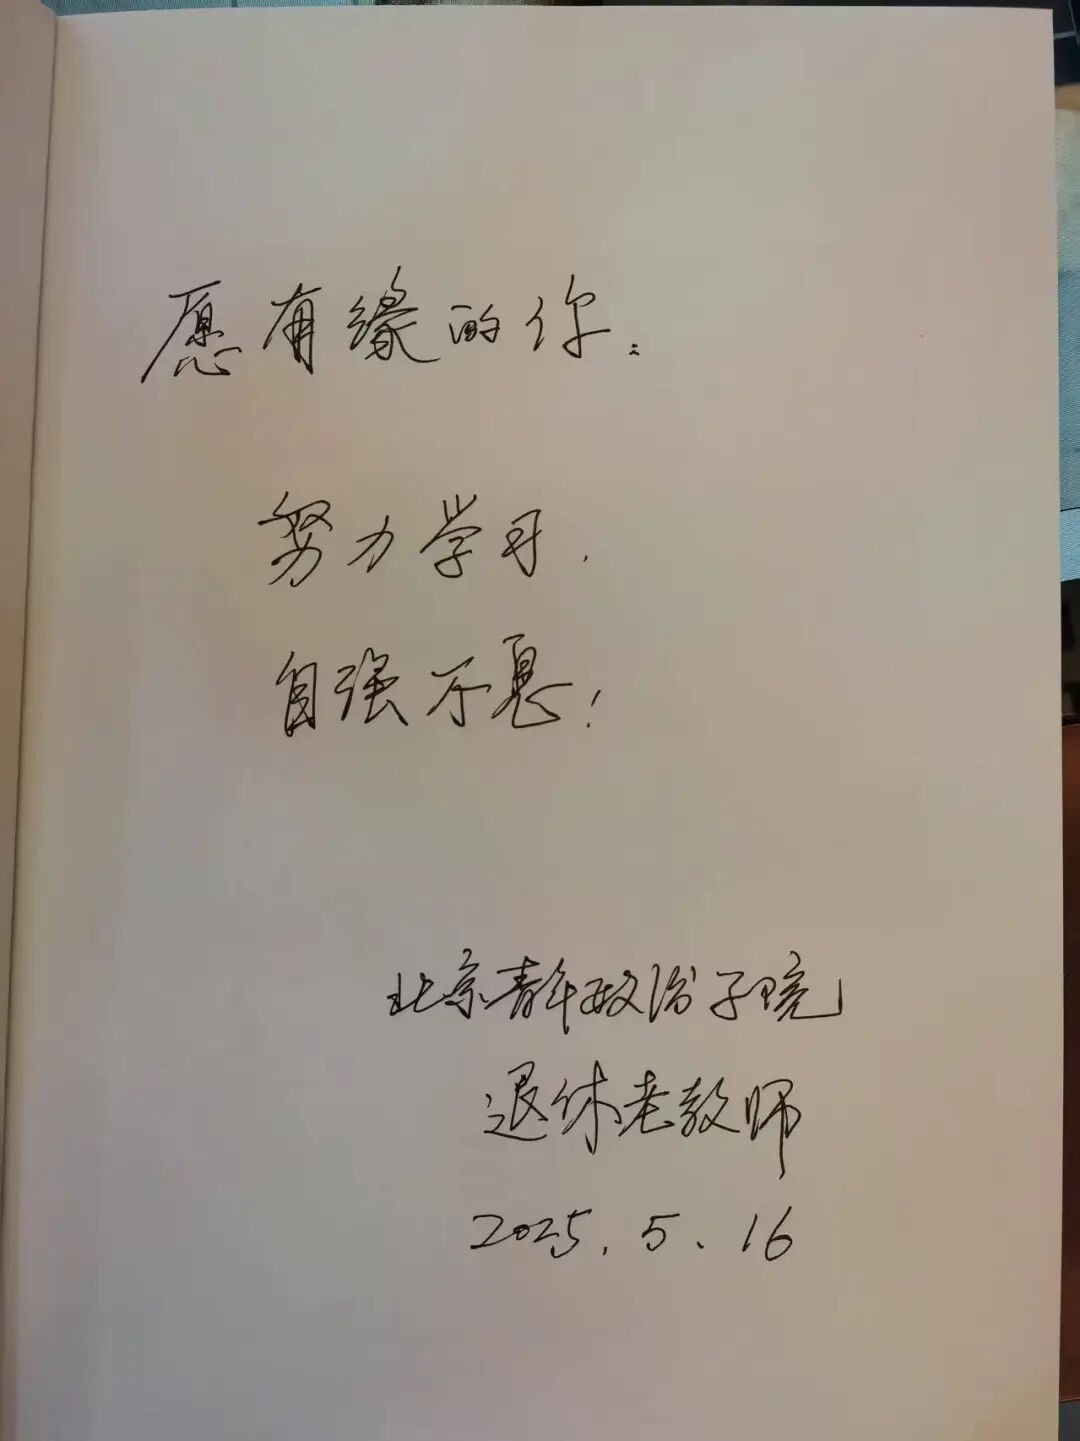 愿有缘的你：
努力学习，
自强不息！
北京青年政治学院
退休老教师
2025.5.16